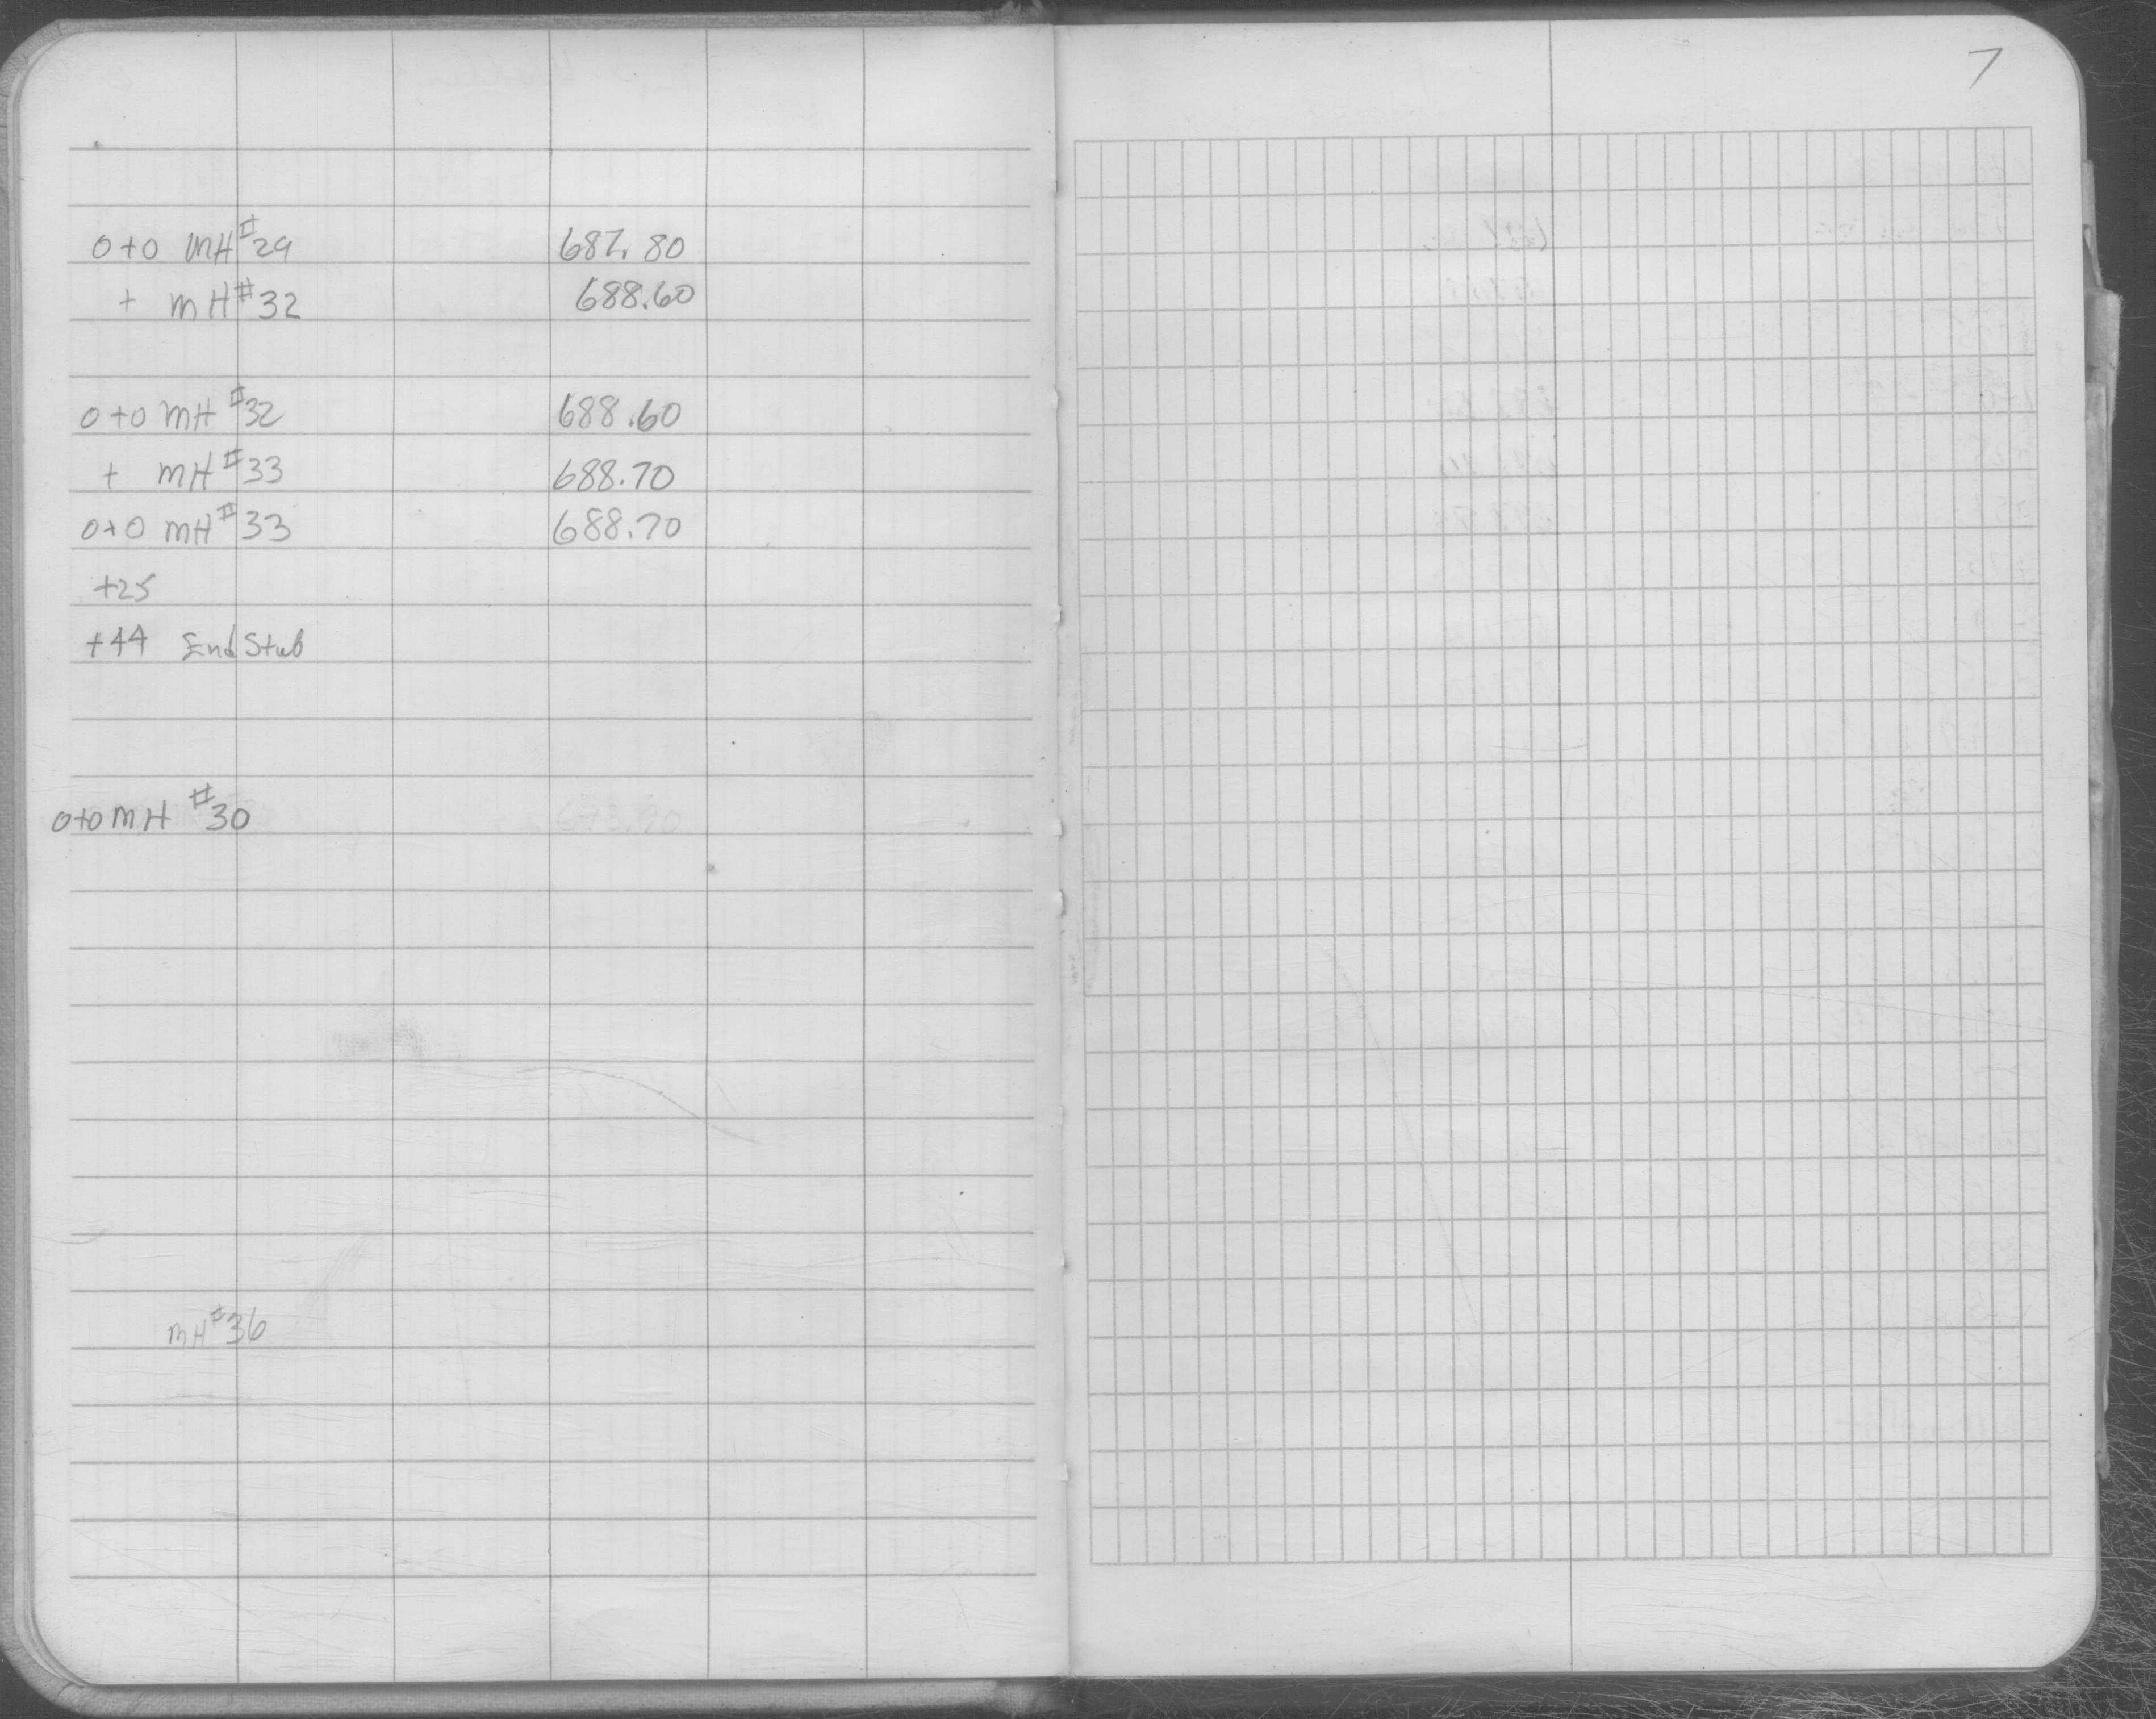 7
0+0 MH #29 687.80
+ MH #32 688.60
0+0 MH #32 688.60
+ MH #33 688.70
0+0 MH #33 688.70
+25
+44 End Stub
0+0 MH #30
MH #36